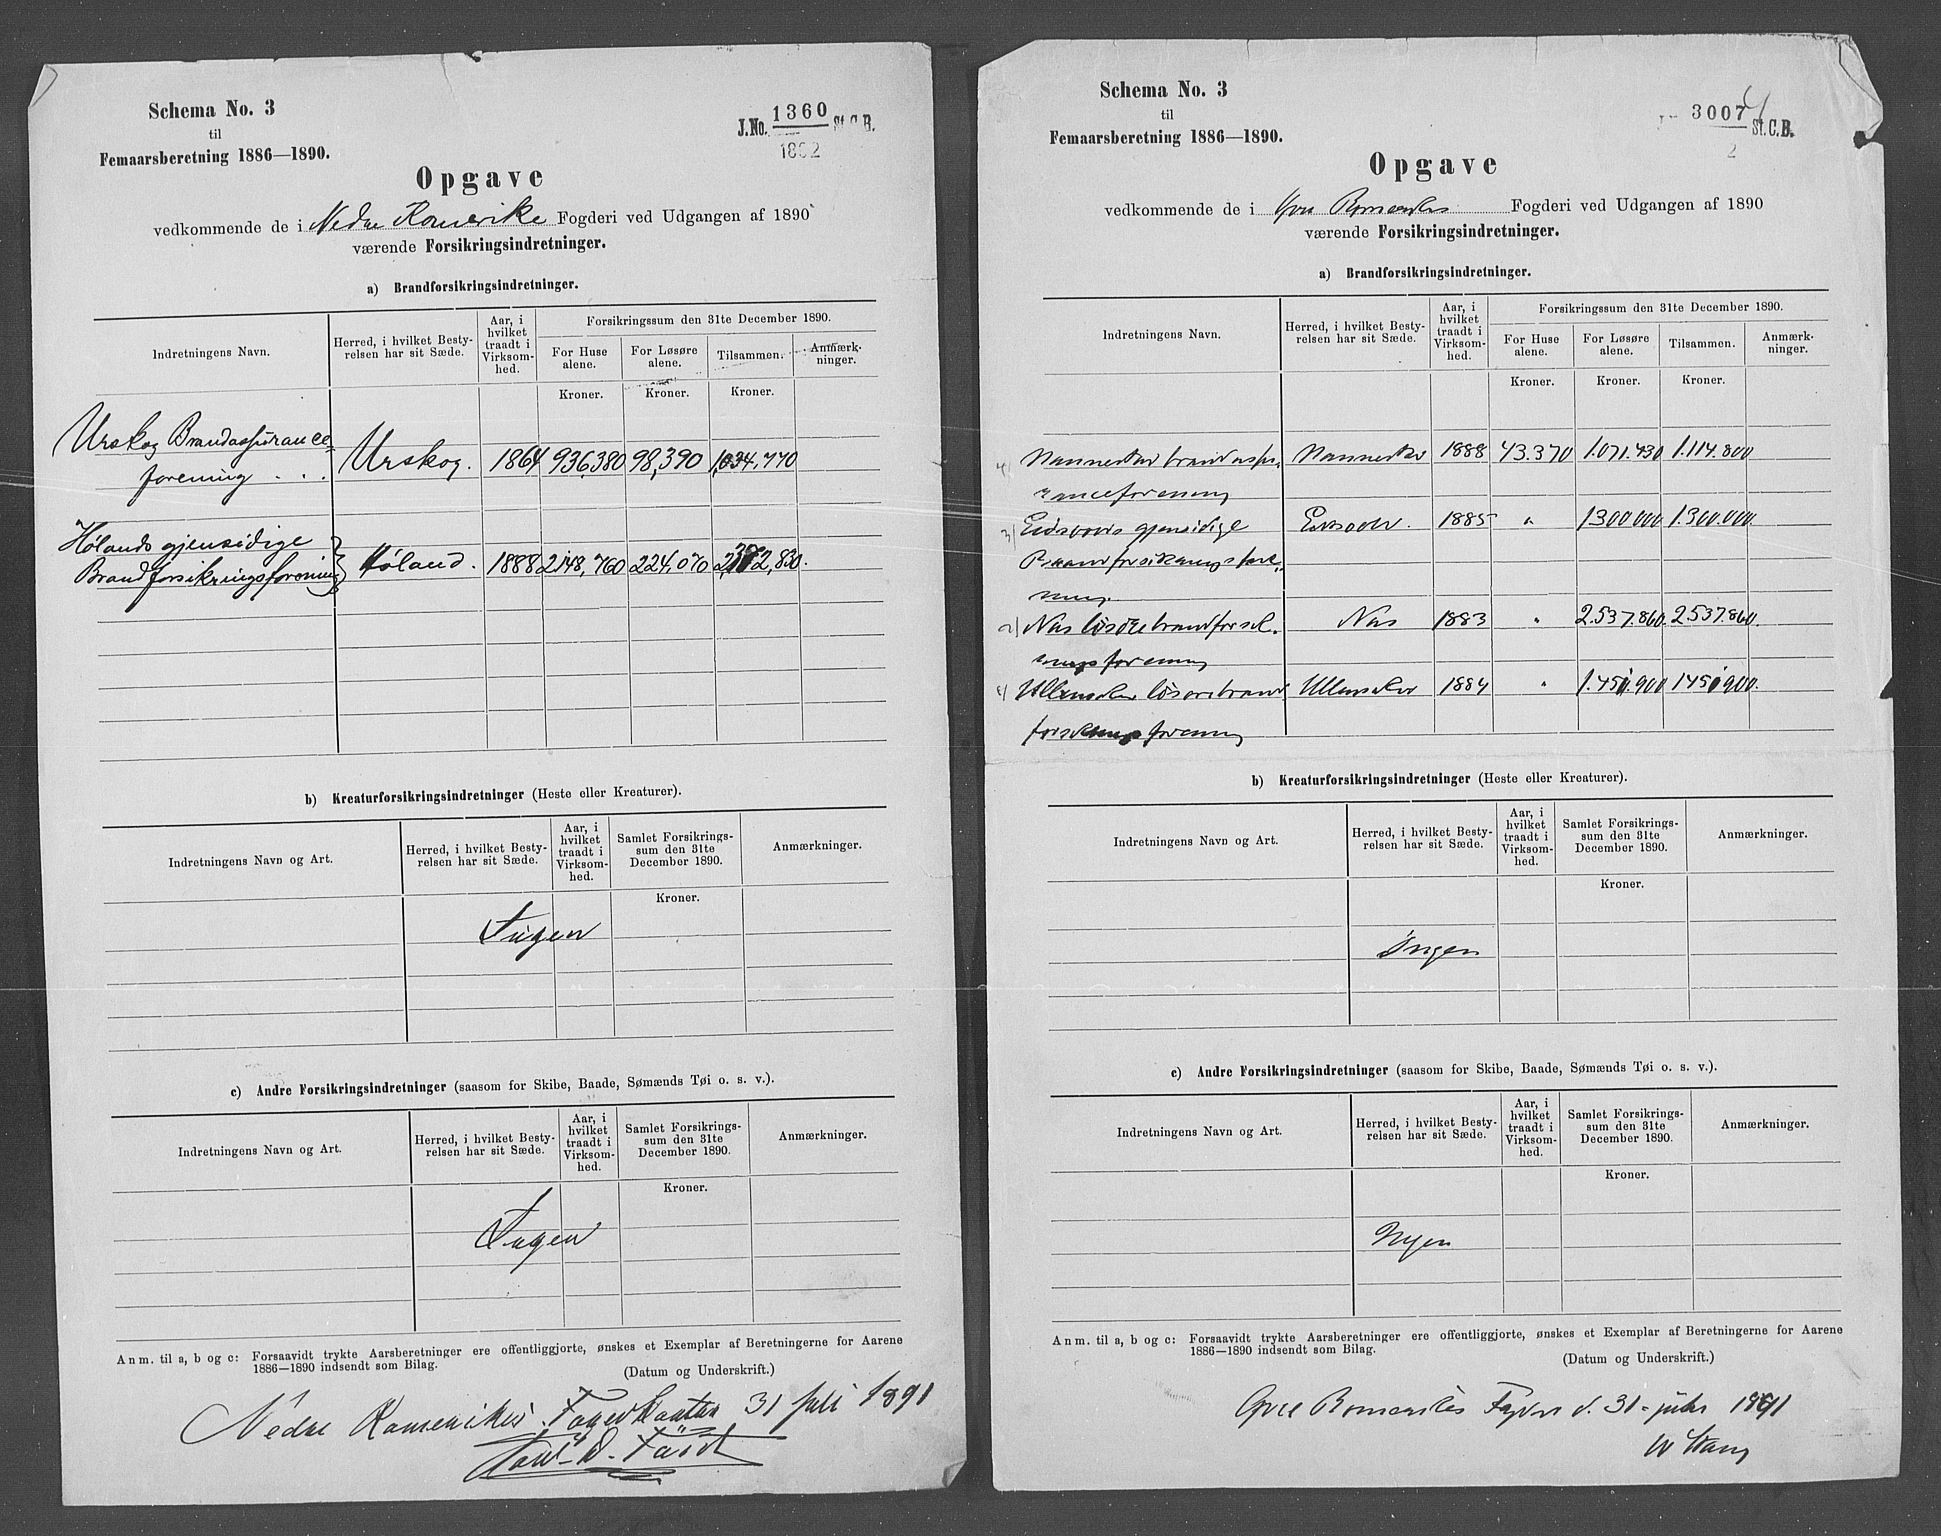 Schema No. 3
til
Femaarsberetning 1886—1890.
J.No. 1360 St.C.B.
1892
Opgave
vedkommende de i Nedre Romerike Fogderi ved Udgangen af 1890
værende Forsikringsindretninger.
a) Brandforsikringsindretninger.
Indretningens Navn.
Herred, i hvilket Besty-
relsen har sit Sæde.
Aar, i
hvilket
traadt i
Virksom-
hed.
Forsikringssum den 31te December 1890.
For Huse
alene.
For Løsøre
alene.
Tilsammen.
Anmærk-
ninger.
Kroner. Kroner. Kroner.
Urskog Brandassurance=
forening . . . Urskog. 1864 936,380 98,390 1,034,770
Hølands gjensidige
Brandforsikringsforening Høland. 1888 2148,760 224,070 2,372,830.
b) Kreaturforsikringsindretninger (Heste eller Kreaturer).
Indretningens Navn og Art.
Herred, i hvilket Besty-
relsen har sit Sæde.
Aar, i
hvilket
traadt i
Virksom-
hed.
Samlet Forsikrings-
sum den 31te
December 1890.
Anmærkninger.
Kroner.
Ingen
c) Andre Forsikringsindretninger (saasom for Skibe, Baade, Sømænds Tøi o. s. v.).
Indretningens Navn og Art.
Herred, i hvilket Besty-
relsen har sit Sæde.
Aar, i
hvilket
traadt i
Virksom-
hed.
Samlet Forsikrings-
sum den 31te
December 1890.
Anmærkninger.
Kroner.
Ingen
Anm. til a, b og c: Forsaavidt trykte Aarsberetninger ere offentliggjorte, ønskes et Exemplar af Beretningerne for Aarene
1886—1890 indsendt som Bilag.
(Datum og Underskrift.)
Nedre Romerikes Fogedkontor 31 Juli 1891
Schema No. 3
til
Femaarsberetning 1886—1890.
3007 St.C.B.
2
Opgave
vedkommende de i Øvre Romerikes Fogderi ved Udgangen af 1890
værende Forsikringsindretninger.
a) Brandforsikringsindretninger.
Indretningens Navn.
Herred, i hvilket Besty-
relsen har sit Sæde.
Aar, i
hvilket
traadt i
Virksom-
hed.
Forsikringssum den 31te December 1890.
For Huse
alene.
For Løsøre
alene.
Tilsammen.
Anmærk-
ninger.
Kroner. Kroner. Kroner.
4) Nannestad brandassu-
ranceforening Nannestad 1888 43.370 1.071.430 1.114.800
3) Eidsvolds gjensidige
Brandforsikringsfore-
ning. Eidsvold. 1885 " 1300000 1.300.000
2) Næs løsørebrandforsik-
ringsforening Næs 1883 " 2.537.860. 2.537.860.
1) Ullensaker løsørebrand
forsikringsforening Ullensaker 1884 " 1.451.900 1451900.
b) Kreaturforsikringsindretninger (Heste eller Kreaturer).
Indretningens Navn og Art.
Herred, i hvilket Besty-
relsen har sit Sæde.
Aar, i
hvilket
traadt i
Virksom-
hed.
Samlet Forsikrings-
sum den 31te
December 1890.
Anmærkninger.
Kroner.
Ingen
c) Andre Forsikringsindretninger (saasom for Skibe, Baade, Sømænds Tøi o. s. v.).
Indretningens Navn og Art.
Herred, i hvilket Besty-
relsen har sit Sæde.
Aar, i
hvilket
traadt i
Virksom-
hed.
Samlet Forsikrings-
sum den 31te
December 1890.
Anmærkninger.
Kroner.
Ingen
Anm. til a, b og c: Forsaavidt trykte Aarsberetninger ere offentliggjorte, ønskes et Exemplar af Beretningerne for Aarene
1886—1890 indsendt som Bilag.
(Datum og Underskrift.)
Øvre Romerikes Fogderi d. 31- juli 1891